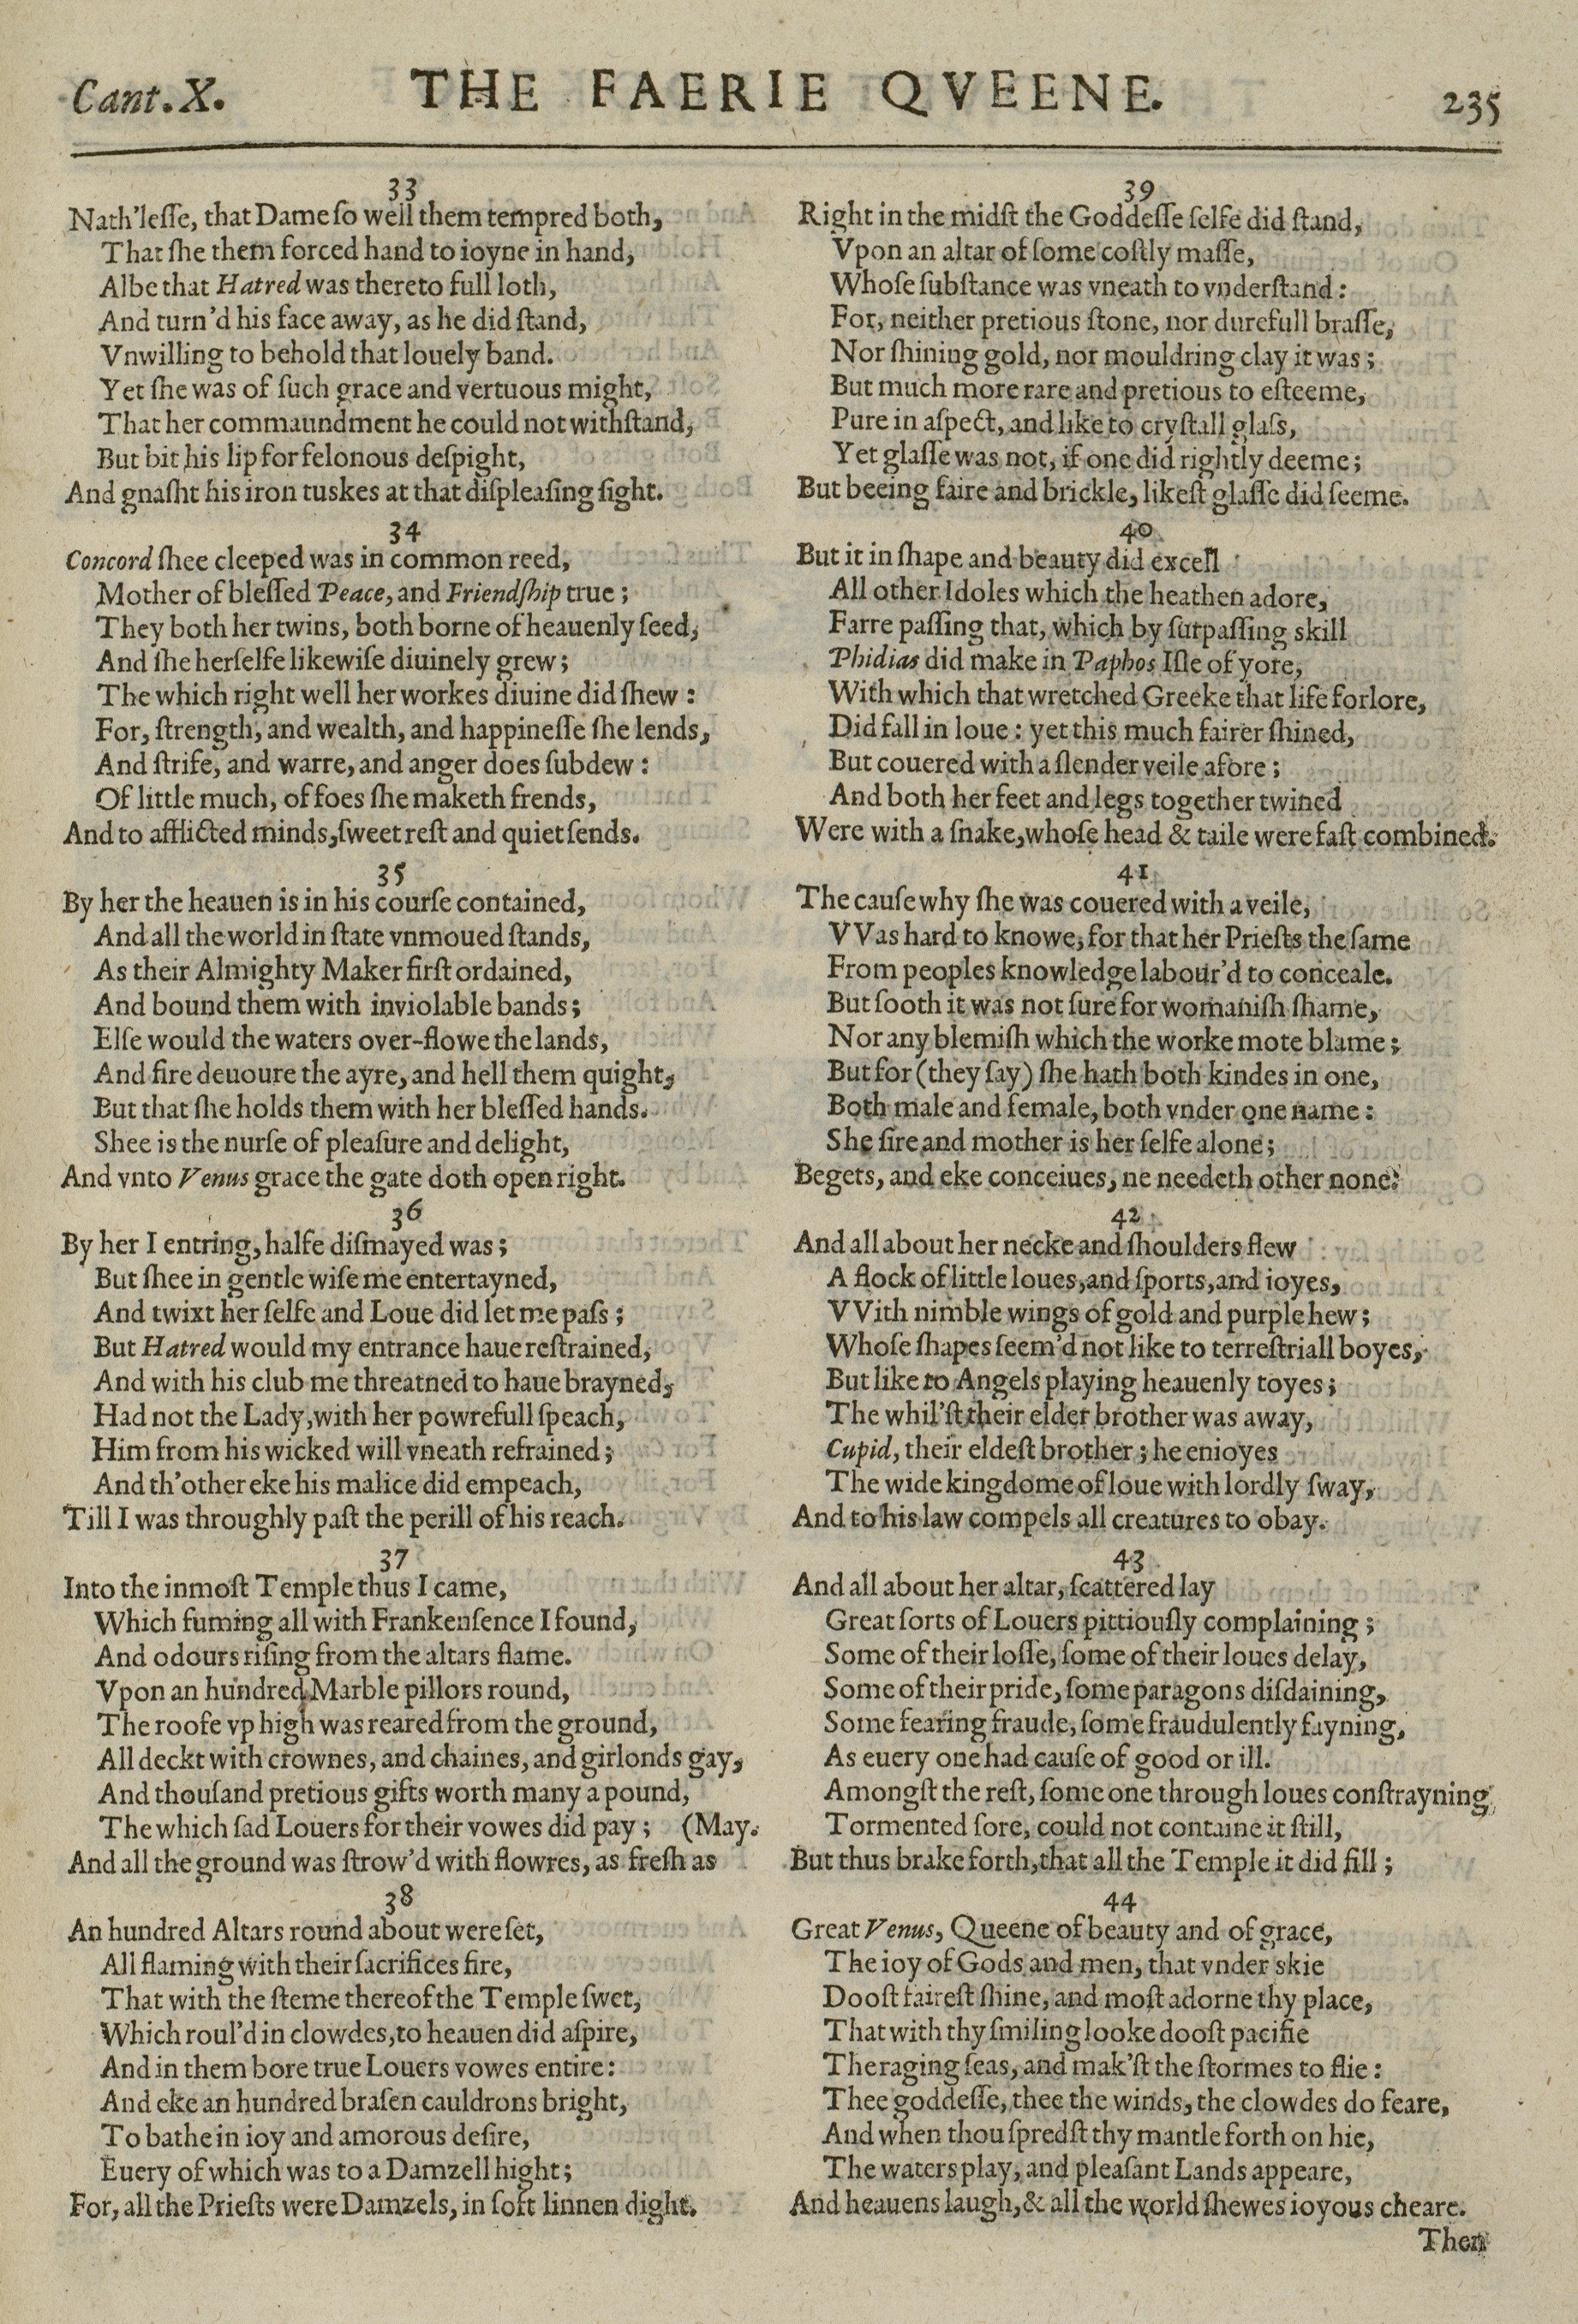 Cant. X. THE FAERIE QVEENE. 235
33
Nath'leſſe, that Dame ſo well them tempred both,
That ſhe them forced hand to ioyne in hand,
Albe that Hatred was thereto full loth,
And turn'd his face away, as he did ſtand,
Vnwilling to behold that louely band.
Yet ſhe was of ſuch grace and vertuous might,
That her commaundment he could not withſtand,
But bit his lip for felonous deſpight,
And gnaſht his iron tuskes at that diſpleaſing ſight.
34
Concord ſhee cleeped was in common reed,
Mother of bleſſed Peace, and Friendſhip true;
They both her twins, both borne of heauenly ſeed,
And ſhe herſelfe likewiſe diuinely grew;
The which right well her workes diuine did ſhew:
For, ſtrength, and wealth, and happineſſe ſhe lends,
And ſtrife, and warre, and anger does ſubdew:
Of little much, of foes ſhe maketh frends,
And to afflicted minds, ſweet reſt and quiet ſends.
35
By her the heauen is in his courſe contained,
And all the world in ſtate vnmoued ſtands,
As their Almighty Maker firſt ordained,
And bound them with inviolable bands;
Elſe would the waters over-flowe the lands,
And fire deuoure the ayre, and hell them quight,
But that ſhe holds them with her bleſſed hands.
Shee is the nurſe of pleaſure and delight,
And vnto Venus grace the gate doth open right.
36
By her I entring, halfe diſmayed was;
But ſhee in gentle wiſe me entertayned,
And twixt her ſelfe and Loue did let me paſs;
But Hatred would my entrance haue reſtrained,
And with his club me threatned to haue brayned,
Had not the Lady, with her powrefull ſpeach,
Him from his wicked will vneath refrained;
And th'other eke his malice did empeach,
Till I was throughly paſt the perill of his reach.
37
Into the inmoſt Temple thus I came,
Which fuming all with Frankenſence I found,
And odours riſing from the altars flame.
Vpon an hundred Marble pillors round,
The roofe vp high was reared from the ground,
All deckt with crownes, and chaines, and girlonds gay,
And thouſand pretious gifts worth many a pound,
The which ſad Louers for their vowes did pay; (May.
And all the ground was ſtrow'd with flowres, as freſh as
38
An hundred Altars round about were ſet,
All flaming with their ſacrifices fire,
That with the ſteme thereof the Temple ſwet,
Which roul'd in clowdes, to heauen did aſpire,
And in them bore true Louers vowes entire:
And eke an hundred braſen cauldrons bright,
To bathe in ioy and amorous deſire,
Euery of which was to a Damzell hight;
For, all the Prieſts were Damzels, in ſoft linnen dight.
39
Right in the midſt the Goddeſſe ſelfe did ſtand,
Vpon an altar of ſome coſtly maſſe,
Whoſe ſubſtance was vneath to vnderſtand:
For, neither pretious ſtone, nor durefull braſſe,
Nor ſhining gold, nor mouldring clay it was;
But much more rare and pretious to eſteeme,
Pure in aſpect, and like to cryſtall glaſs,
Yet glaſſe was not, if one did rightly deeme;
But beeing faire and brickle, likeſt glaſſe did ſeeme.
40
But it in ſhape and beauty did excell
All other Idoles which the heathen adore,
Farre paſſing that, which by ſurpaſſing skill
Phidias did make in Paphos Iſle of yore,
With which that wretched Greeke that life forlore,
Did fall in loue: yet this much fairer ſhined,
But couered with a ſlender veile afore;
And both her feet and legs together twined
Were with a ſnake, whoſe head & taile were faſt combined.
41
The cauſe why ſhe was couered with a veile,
VVas hard to knowe, for that her Prieſts the ſame
From peoples knowledge labour'd to conceale.
But ſooth it was not ſure for womaniſh ſhame,
Nor any blemiſh which the worke mote blame;
But for (they ſay) ſhe hath both kindes in one,
Both male and female, both vnder one name:
She ſire and mother is her ſelfe alone;
Begets, and eke conceiues, ne needeth other none.
42
And all about her necke and ſhoulders flew
A flock of little loues, and ſports, and ioyes,
VVith nimble wings of gold and purple hew;
Whoſe ſhapes ſeem'd not like to terreſtriall boyes,
But like to Angels playing heauenly toyes;
The whil'ſt their elder brother was away,
Cupid, their eldeſt brother; he enioyes
The wide kingdome of loue with lordly ſway,
And to his law compels all creatures to obay.
43
And all about her altar, ſcattered lay
Great ſorts of Louers pittiouſly complaining;
Some of their loſſe, ſome of their loues delay,
Some of their pride, ſome paragons diſdaining,
Some fearing fraude, ſome fraudulently fayning,
As euery one had cauſe of good or ill.
Amongſt the reſt, ſome one through loues conſtrayning,
Tormented ſore, could not containe it ſtill,
But thus brake forth, that all the Temple it did fill;
44
Great Venus, Queene of beauty and of grace,
The ioy of Gods and men, that vnder skie
Dooſt faireſt ſhine, and moſt adorne thy place,
That with thy ſmiling looke dooſt pacifie
The raging ſeas, and mak'ſt the ſtormes to flie:
Thee goddeſſe, thee the winds, the clowdes do feare,
And when thou ſpredſt thy mantle forth on hie,
The waters play, and pleaſant Lands appeare,
And heauens laugh, & all the world ſhewes ioyous cheare.
Then